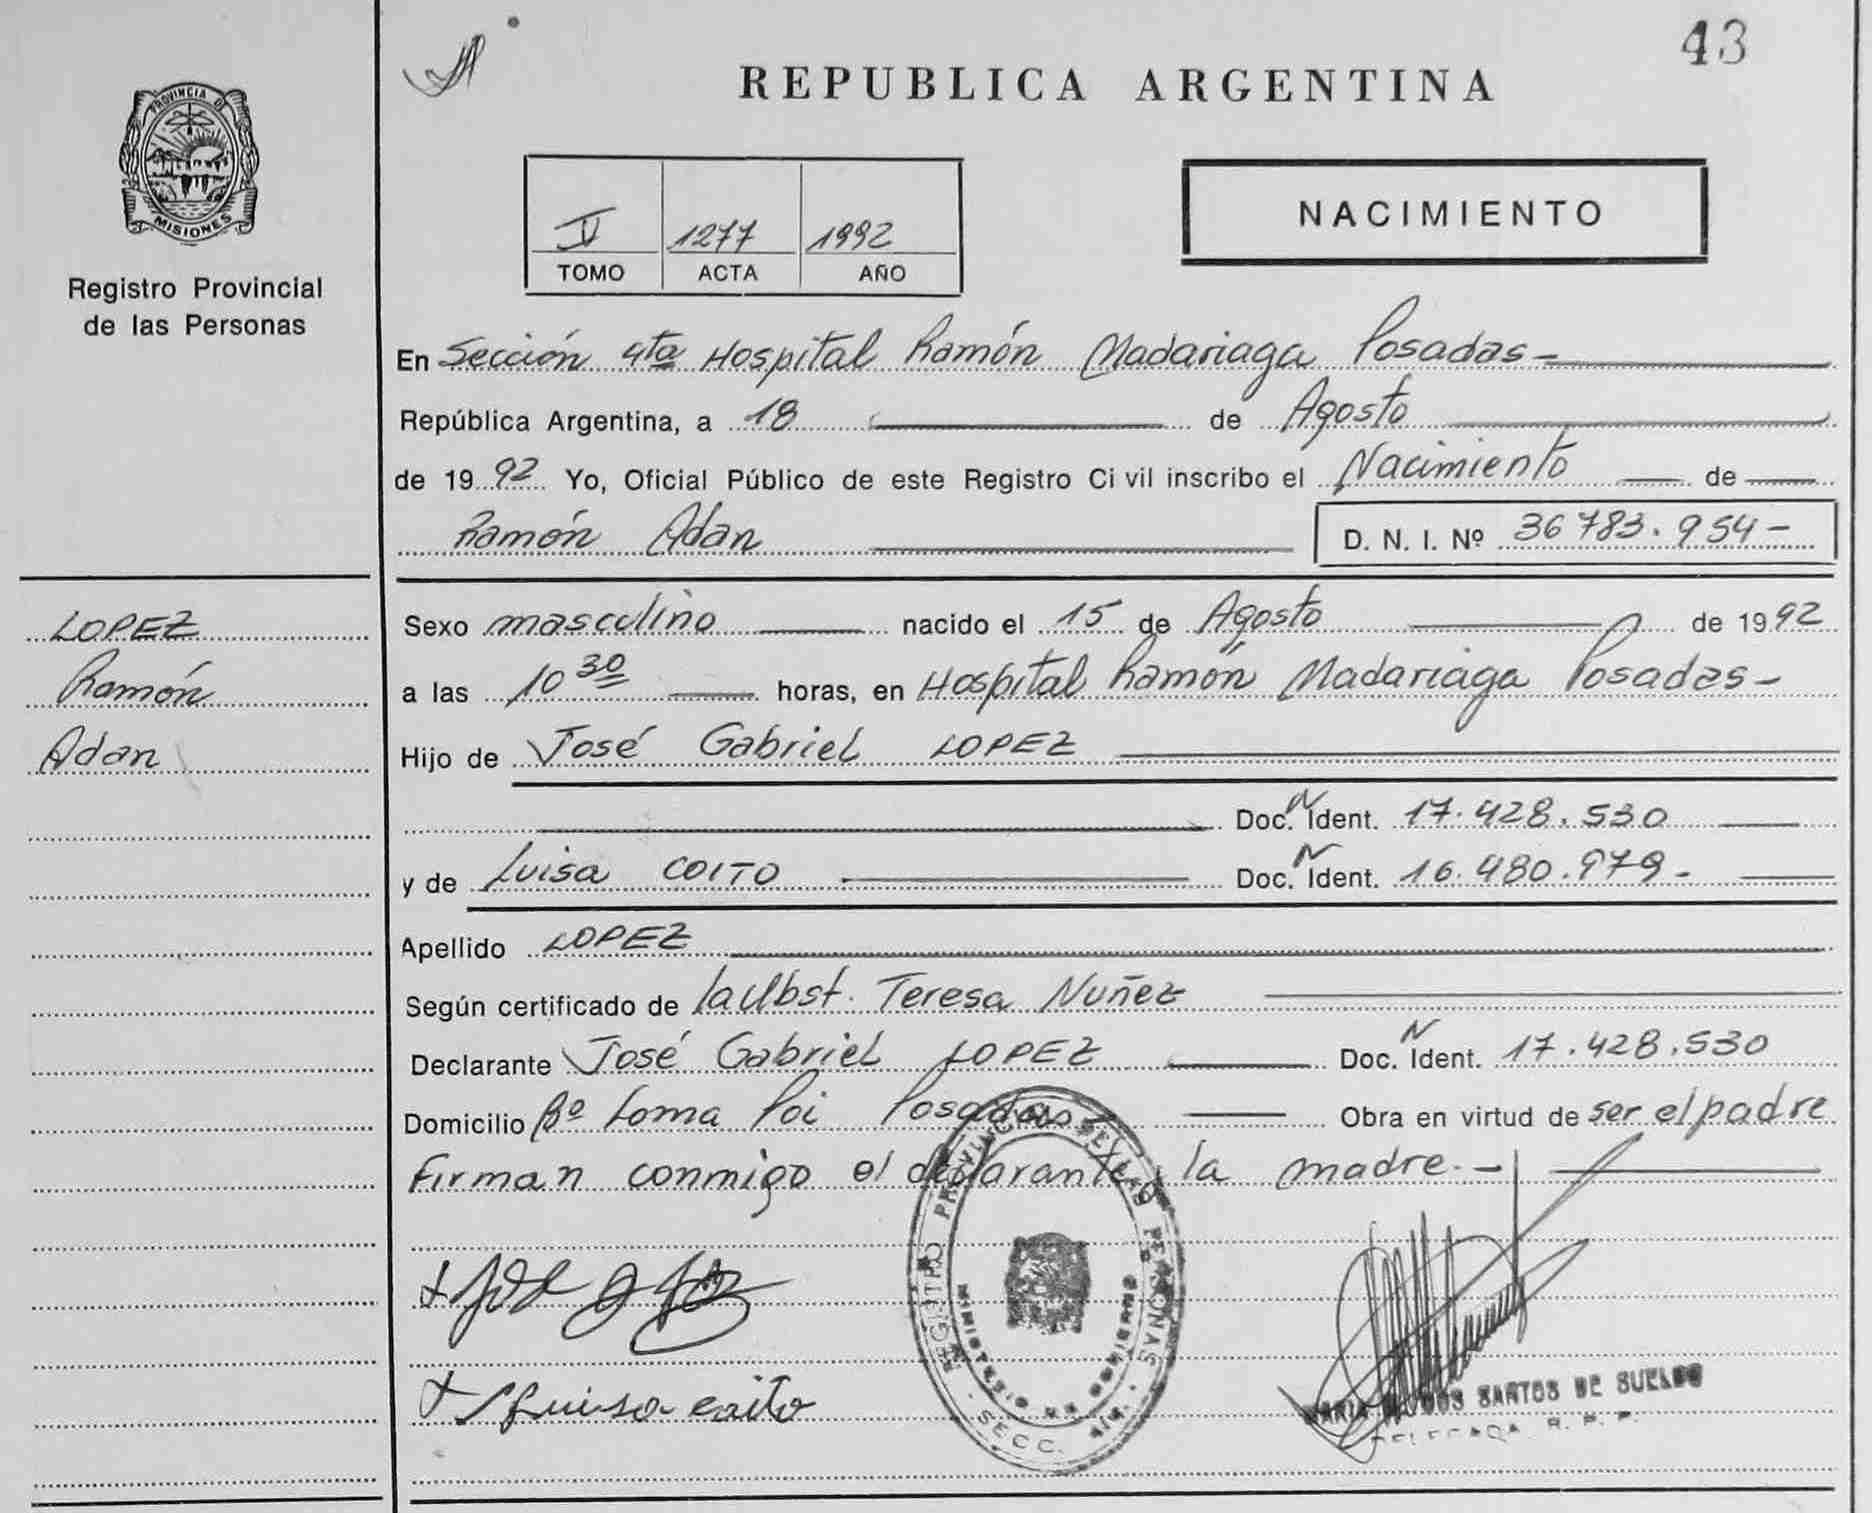 43
REPUBLICA ARGENTINA
PROVINCIA D
MISIONES
Registro Provincial
de las Personas
1277 1992
TOMO ACTA AÑO
NACIMIENTO
En Sección 4ta Hospital Ramón Madariaga Posadas-
República Argentina, a 18 de Agosto
de 1992 Yo, Oficial Público de este Registro Ci vil inscribo el Nacimiento de
Ramón Adan D. N. I. Nº 36783.954-
LOPEZ
Ramón
Adan
Sexo masculino nacido el 15 de Agosto de 1992
a las 10 30 horas, en Hospital Ramón Madariaga Posadas-
Hijo de José Gabriel LOPEZ
Doc. N Ident. 17.428.530
y de Luisa COITO Doc. N Ident. 16.480.979-
Apellido LOPEZ
Según certificado de la Obst. Teresa Nuñez
Declarante José Gabriel LOPEZ Doc. N Ident. 17.428.530
Domicilio Bº Loma Poi Posadas Obra en virtud de ser el padre
Firman conmigo el declarante y la madre.-
Luisa coito
REGISTRO PROVINCIAL DE LAS PERSONAS
MINISTERIO DE GOBIERNO
SECC. 4ta.
SANTOS DE SUELDO
DELEGADA R. P. P.